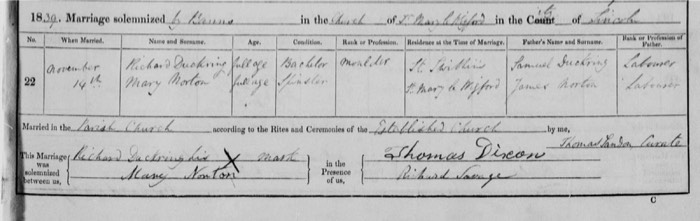 1839. Marriage solemnized by Banns in the Church of St Mary le Wigford in the City County of Lincoln
No. When Married. Name and Surname. Age. Condition. Rank or Profession. Residence at the Time of Marriage. Father's Name and Surname. Rank or Profession of Father.
22 November 14th Richard Duckring full age Bachelor Moulder St Swithins Samuel Duckring Labourer
Mary Norton full age Spinster St Mary le Wigford James Norton Labourer
Married in the Parish Church according to the Rites and Ceremonies of the Established Church by me,
Thomas Curate
This Marriage was solemnized between us, Richard Duckring his X mark in the Presence of us, Thomas Dixon
Mary Norton Richard Savage
C